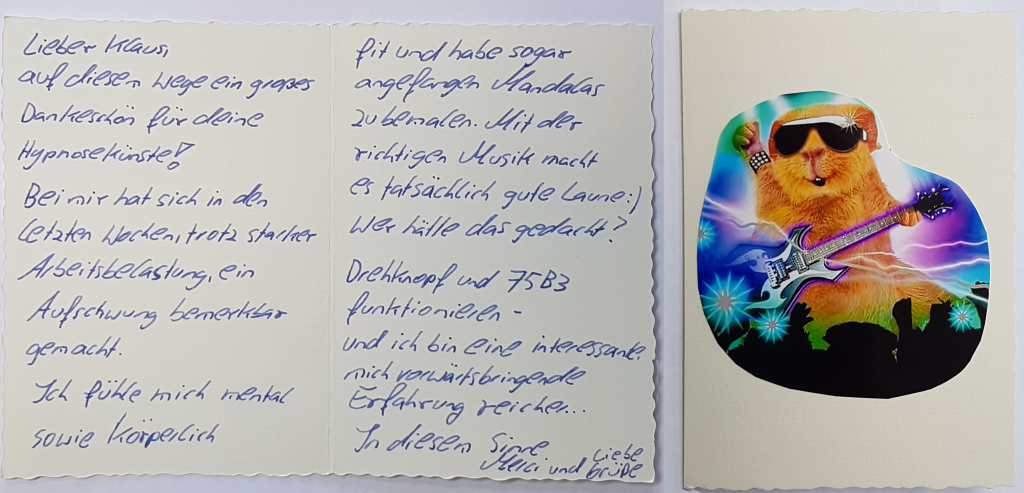 Lieber Klaus,
auf diesem Wege ein großes
Dankeschön für deine
Hypnosekünste!
Bei mir hat sich in den
letzten Wochen, trotz starker
Arbeitsbelastung, ein
Aufschwung bemerkbar
gemacht.
Ich fühle mich mental
sowie körperlich
fit und habe sogar
angefangen Mandalas
zu bemalen. Mit der
richtigen Musik macht
es tatsächlich gute Laune :)
Wer hätte das gedacht?
Drehknopf und 75B3
funktionieren -
und ich bin eine interessante,
mich vorwärtsbringende
Erfahrung reicher...
In diesem Sinne
Merci und liebe
Grüße